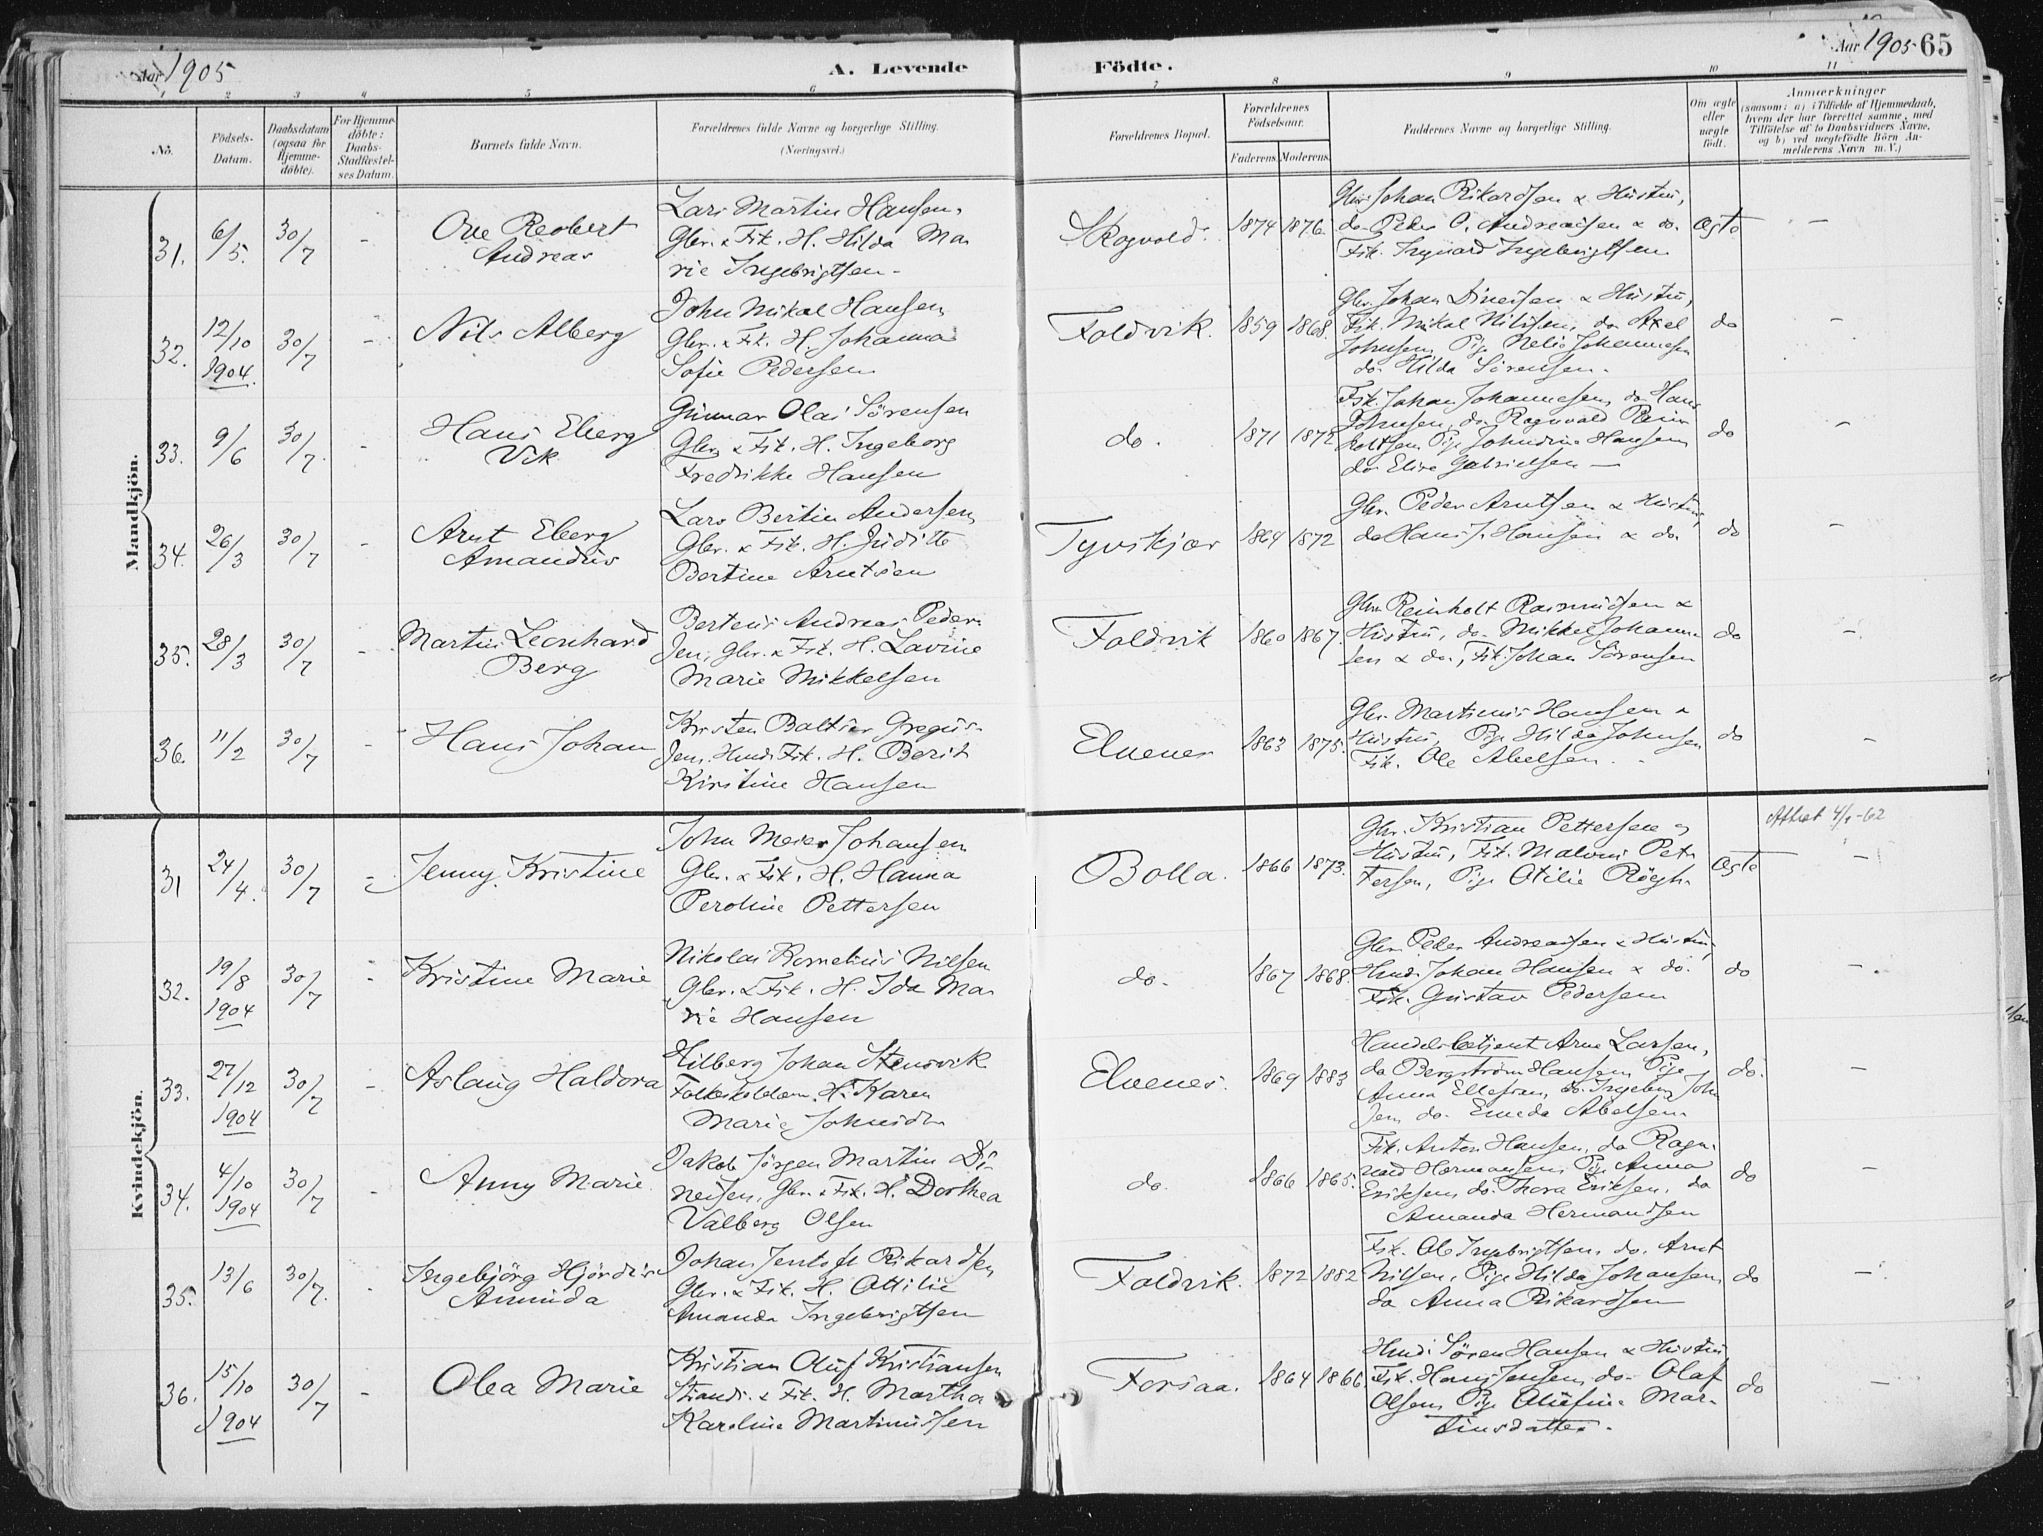 Aar 1905
A. Levende
Födte.
Aar 1905 65
1 2 3 4 5 6 7 8 9 10 11
No.
Födsels-
Datum.
Daabsdatum
(ogsaa for
Hjemme-
döbte).
For Hjemme-
döbte:
Daabs-
Stadfæstel-
ses Datum.
Barnets fulde Navn.
Forældrenes fulde Navne og borgerlige Stilling.
(Næringsvei.)
Forældrenes Bopæl.
Forældrenes
Födselsaar.
Faderens. Moderens.
Faddernes Navne og borgerlige Stilling.
Om ægte
eller
uægte
født.
Anmærkninger
(saasom: a) i Tilfælde af Hjemmedaab,
hvem der har forrettet samme, med
Tilföielse af to Daabsvidners Navne,
og b) ved uægtefödte Börn An-
melderens Navn m. V.)
Mandkjön.
31. 6/5. 30/7 - Ove Reobert
Andreas
Lars Martin Hansen,
Gbr. & Fisk. H. Hilda Ma
rie Ingebrigtsen -
Skogvold. 1874 1876
Gbr. Johan Rikardsen & Hustru,
do Peder C. Andreassen & do.
Fisk. Ingvard Ingebrigtsen
Ægte -
32. 12/10 1904. 30/7 - Nils Alberg
John Mikal Hansen
Gbr. & Fisk. H. Johanna
Sofie Pedersen
Foldvik. 1859 1868.
Gbr. Johan Dinesen & Hustru,
Fisk. Mikal Nilsen, do Axel
Johnsen, Pige Nelie Johannesen
do. Hilda Sörensen.
do -
33. 9/6 30/7. - Hans Eberg
Vik
Gunnar Olai Sörensen
Gbr. & Fisk. H. Ingeborg
Fredrikke Hansen
do. 1871 1872
Fisk. Johan Johannesen, do Hans
Johnsen, do Ragnvald Rein
holtsen Pige Johndine Hansen
do Elise Gabrielsen -
do -
34. 26/3 30/7 - Arnt Eberg
Amandus
Lars Bertin Andersen
Gbr. & Fisk. H. Juditte
Bertine Arntsen
Tyvskjær 1864 1872
Gbr. Peder Arntsen & Hustru,
do Hans J. Hansen & do.
do -
35. 28/3 30/7 - Martin Leonhard
Berg
Berteus Andreas Peder
sen, Gbr. & Fisk. H. Lavine
Marie Mikkelsen
Foldvik 1860 1867.
Gbr. Reinholt Rasmussen &
Hustru, do. Mikkel Johanne
sen & do, Fisk. Johan Sörensen
do -
36. 11/2 30/7 - Hans Johan
Kristen Baltser Gregus
sen, Husm. Fisk. H. Berit
Kirstine Hansen
Elvenes 1863 1875.
Gbr. Martinus Hansen &
Hustru, Pige Hilda Johnsen
Fisk. Ole Abelsen.
do -
Kvindekjön.
31 24/4. 30/7 - Jenny Kristine
John Meier Johansen
Gbr. & Fisk. H. Hanna
Peroline Pettersen
Bolla. 1866 1873.
Gbr. Kristian Pettersen og
Hustru, Fisk. Malvin Pet
tersen, Pige Otilie Röegh.
Ægte
Attest 4/1-62
-
32. 19/8 1904 30/7 - Kristine Marie
Nikolai Kornelius Nilsen
Gbr. & Fisk. H. Ida Ma
rie Hansen
do. 1867 1868.
Gbr. Peder Andreassen & Hustru,
Husm. Johan Hansen & do.
Fisk. Gustav Pedersen
do -
33. 27/12 1904 30/7 - Aslaug Haldora
Hilberg Johan Stensvik
Folkeskolelærer. H. Karen
Marie Schmidt
Elvenes. 1869 1883
Handelsbetjent Arne Larsen,
do Bergström Hansen, Pige
Anna Ellefsen, do. Ingeborg John
sen, do. Emeda Abelsen.
do. -
34. 4/10 1904 30/7 - Anny Marie
Jakob Jörgen Martin Di-
nesen, Gbr. & Fisk. H. Dorthea
Valberg Olsen
do. 1866 1865.
Fisk. Anton Hansen, do Ragn
vald Hermansen, Pige Anna
Eriksen, do. Thora Eriksen, do
Amanda Hermandsen
do -
35. 13/6 30/7. - Ingebjörg Hjördis
Aminda
Johan Jentoft Rikardsen
Gbr. & Fisk. H. Ottilie
Amanda Ingebrigtsen
Foldvik. 1872 1882
Fisk. Ole Ingebrigtsen, do. Arnt
Nilsen, Pige Hilda Johansen,
do Anna Rikardsen
do -
36. 15/10 1904 30/7 - Olea Marie
Kristian Oluf Kristiansen
Strands. & Fisk. H. Martha
Karoline Martinussen
Forsaa. 1864 1866
Husm. Sören Hansen & Hustru
Fisk. Hans Jensen, do. Olaf
Olsen, Pige Olufine Mar-
tinsdatter.
do -